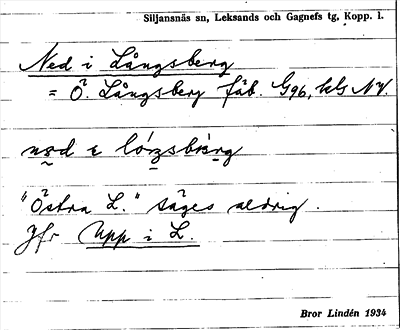 Siljansnäs sn, Leksands och Gagnefs tg, Kopp. l.
Ned i Långsberg
= Ö. Långsberg fäb. G96, kls NV.
"Östra L." säges aldrig.
Jfr Upp i L.
Bror Lindén 1934